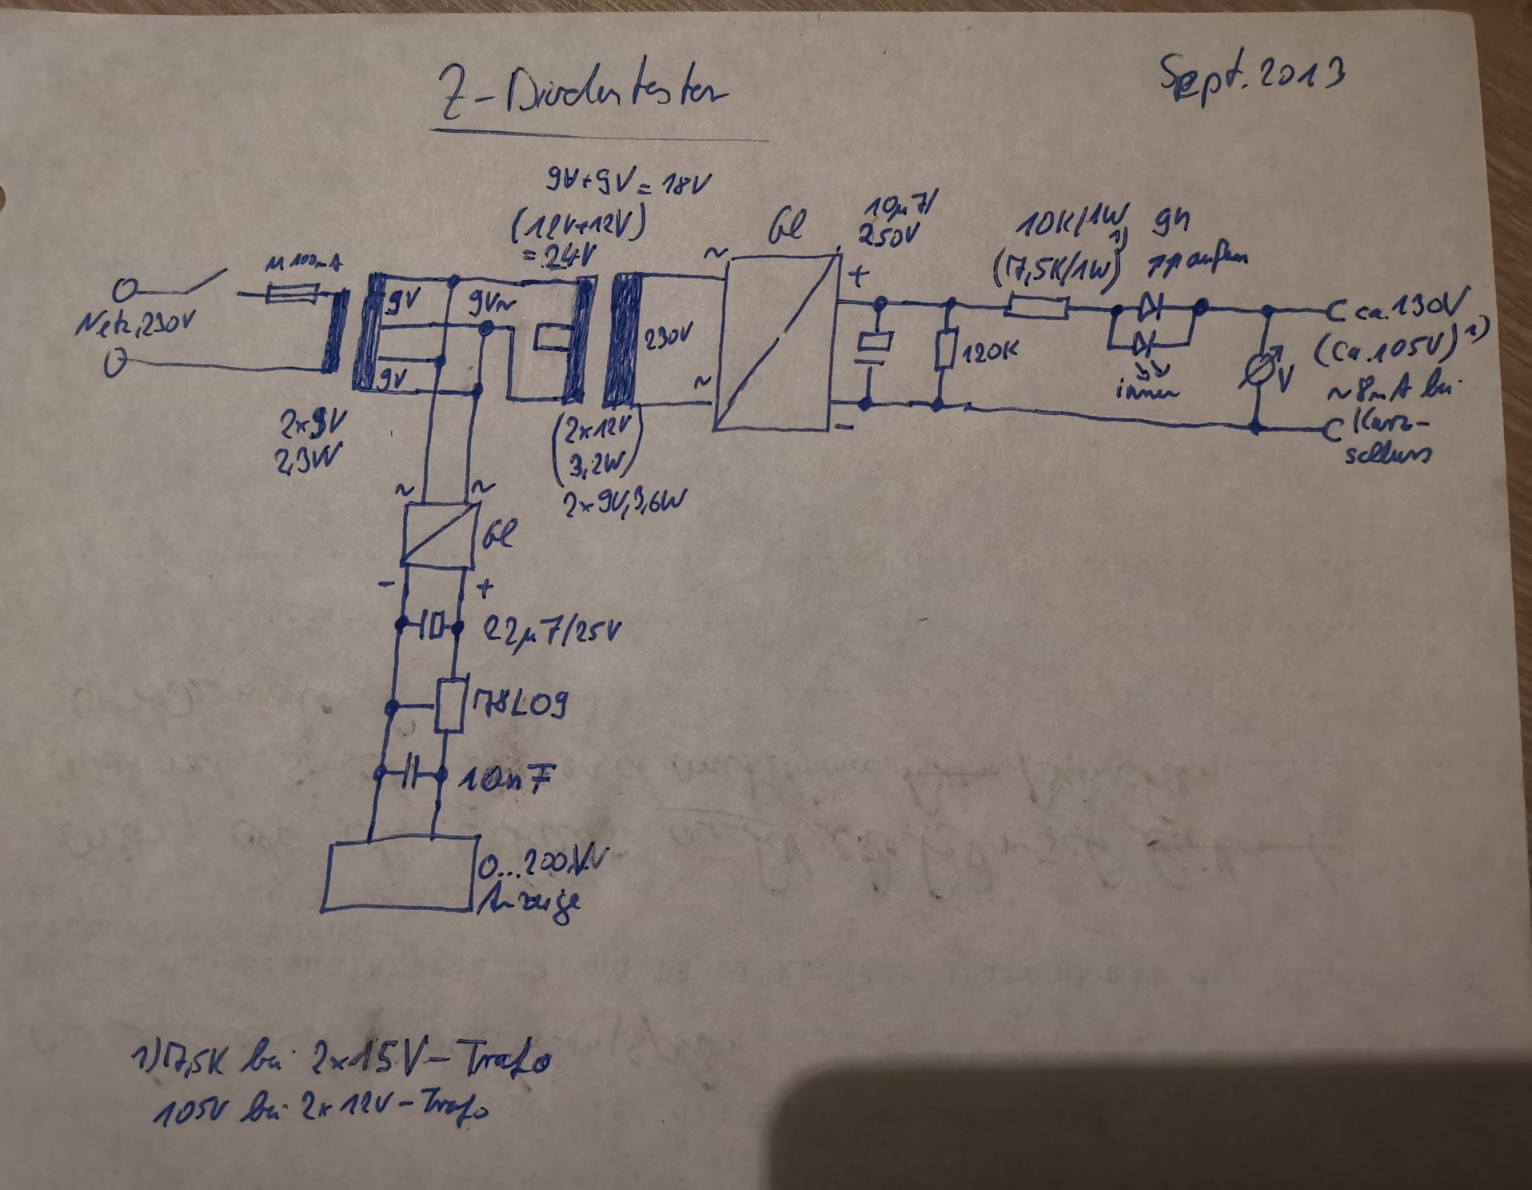 Z-Diodentester
Sept. 2013
9V+9V = 18V
(12V+12V)
= 24V
Gl
10µF/
250V
10K/1W
1)
(7,5K/1W)
gn
außen
M 100mA
Netz, 230V
9V
9V~
9V
230V
~
~
+
-
120K
innen
V
ca. 130V
(ca. 105V) 1)
~8mA bei
Kurz-
schluss
2x9V
2,3W
(2x12V
3,2W)
2x9V, 3,6W
~
~
Gl
-
+
22µF/25V
78L09
10nF
0...200V
Anzeige
1) 7,5K bei 2x15V-Trafo
105V bei 2x12V-Trafo